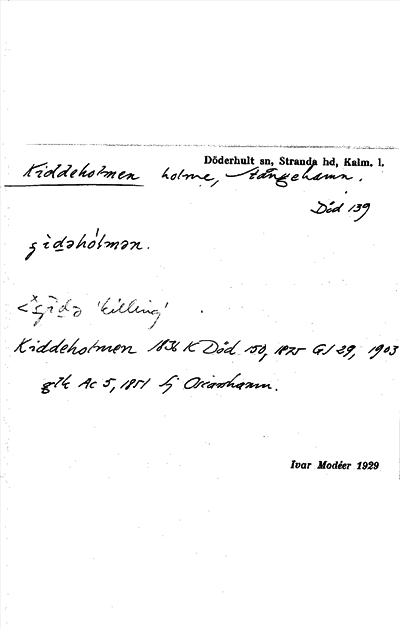 Döderhult sn, Stranda hd, Kalm. l.
Kiddeholmen holme, Stångehamn.
Död 139
ʂìdəhólmən.
<*ʂìdə 'killing'
Kiddeholmen 1836 K Död 150, 1875 GS 29, 1903
Ac 5, 1851 Oscarshamn.
Ivar Modéer 1929